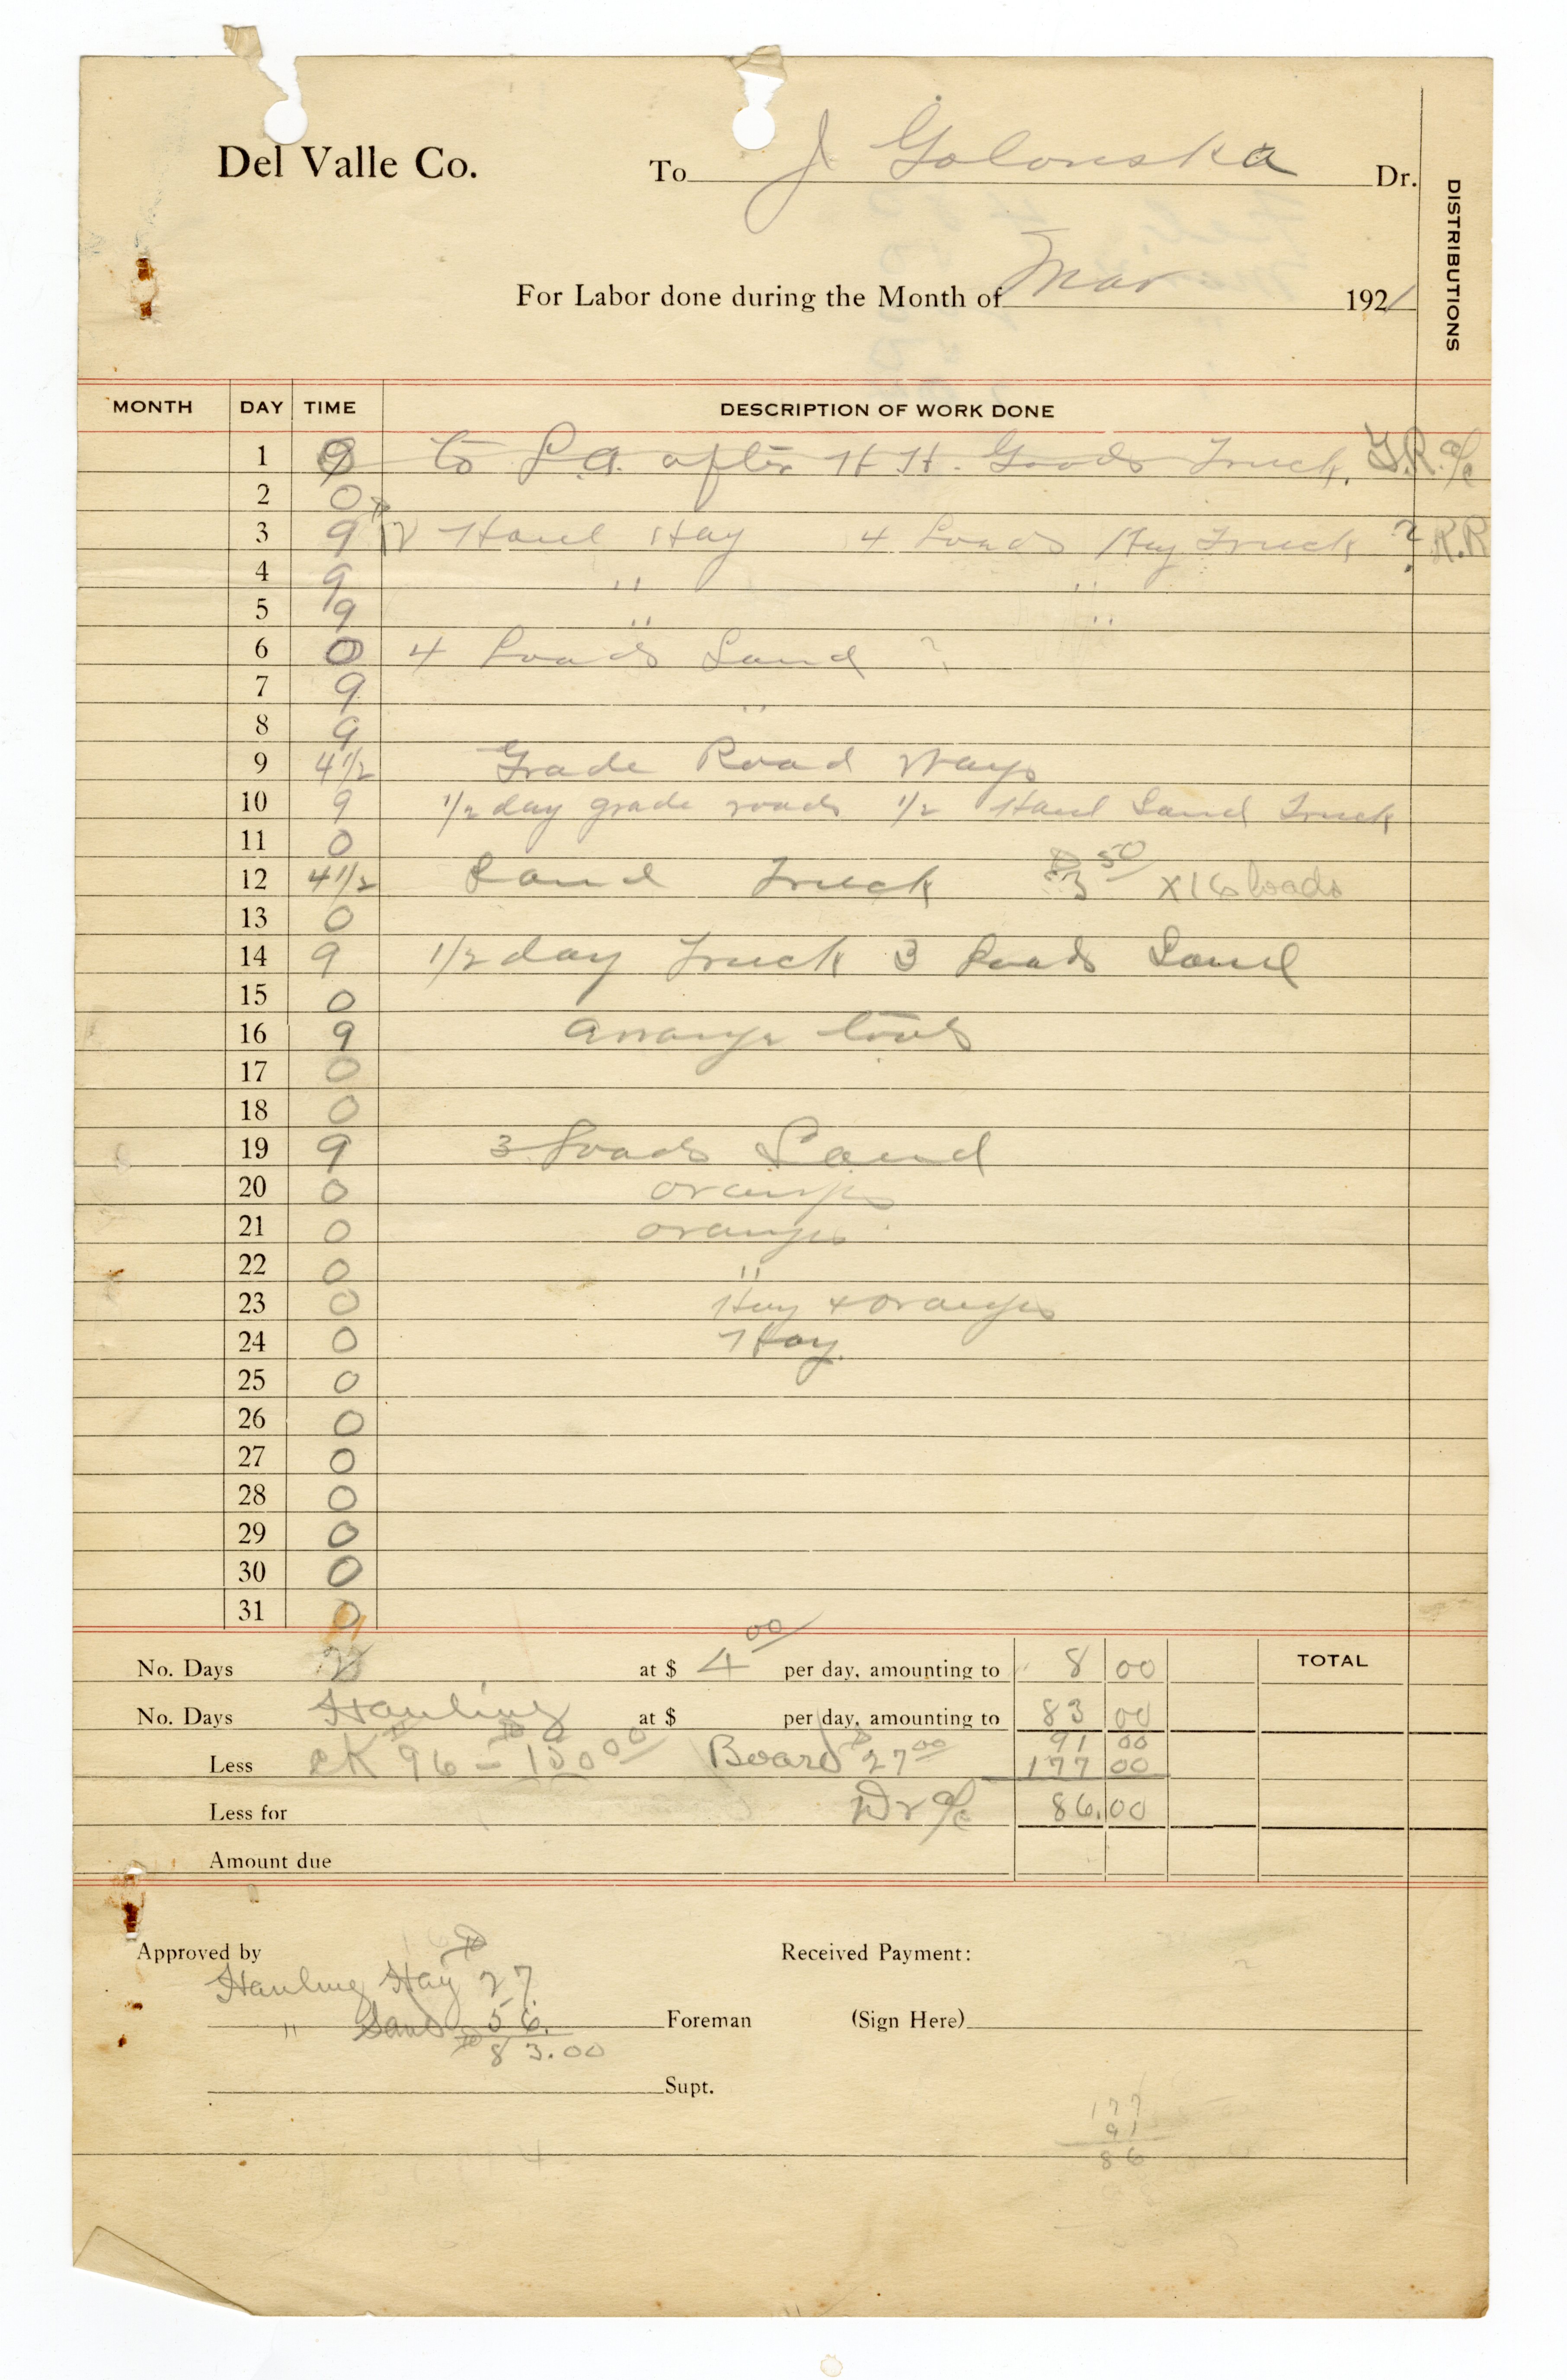 Del Valle Co. To J Golonska Dr.
DISTRIBUTIONS
For Labor done during the Month of Mar 1921
MONTH DAY TIME DESCRIPTION OF WORK DONE
1 9 to L.A. after H H. Goods Truck. G.R. a/c
2 0
3 9 Haul Hay 4 Loads Hay Truck ? R.R
4 9 " "
5 9 " "
6 0 4 Loads Sand ?
7 9 "
8 9
9 4 1/2 Grade Road Ways
10 9 1/2 day grade roads 1/2 Haul Sand Truck
11 0
12 4 1/2 Sand Truck $3 50 x 16 loads
13 0
14 9 1/2 day Truck 3 Loads Sand
15 0
16 9 arrange tools
17 0
18 0
19 9 3 Loads Sand
20 0 oranges
21 0 oranges
22 0 "
23 0 Hay & oranges
24 0 Hay.
25 0
26 0
27 0
28 0
29 0
30 0
31 0
No. Days 2 at $ 4 00 per day, amounting to 8 00 TOTAL
No. Days Hauling at $ per day, amounting to 83 00
91 00
Less CK # 96 - $150 00 Board $27 00 177 00
Less for Dr a/c 86.00
Amount due
Approved by Received Payment:
Hauling Hay $27.
" Sand 56. Foreman (Sign Here)
$83.00
Supt.
177
91
86